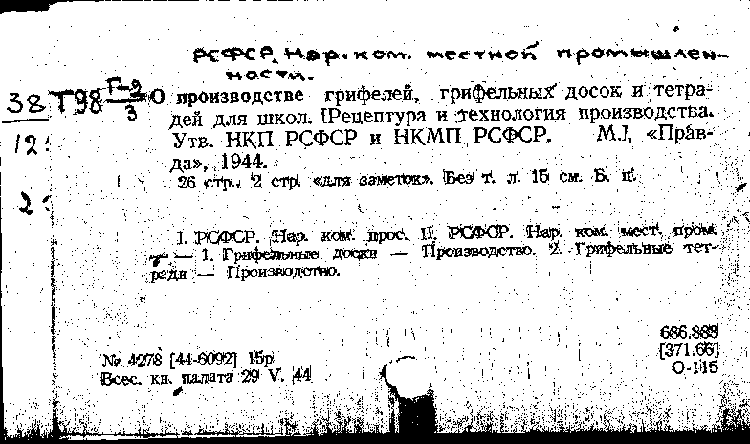 РСФСР, Нар. ком. местной промышлен-
ности.
38 Т98 Г-2/3 О производстве грифелей, грифельных досок и тетра-
дей для школ. [Рецептура и технология производства.
12 Утв. НКП РСФСР и НКМП РСФСР. М.], «Прав-
да», 1944.
2 26 стр., 2 стр. «для заметок». Без т. л. 15 см. Б. ц.
I. РСФСР. Нар. ком. прос. II. РСФСР. Нар. ком. мест. пром.
— 1. Грифельные доски — Производство. 2. Грифельные тет-
ради — Производство.
686.889
№ 4278 [44-6092] 15р [371.66]
Всес. кн. палата 29 V. 44 О-115